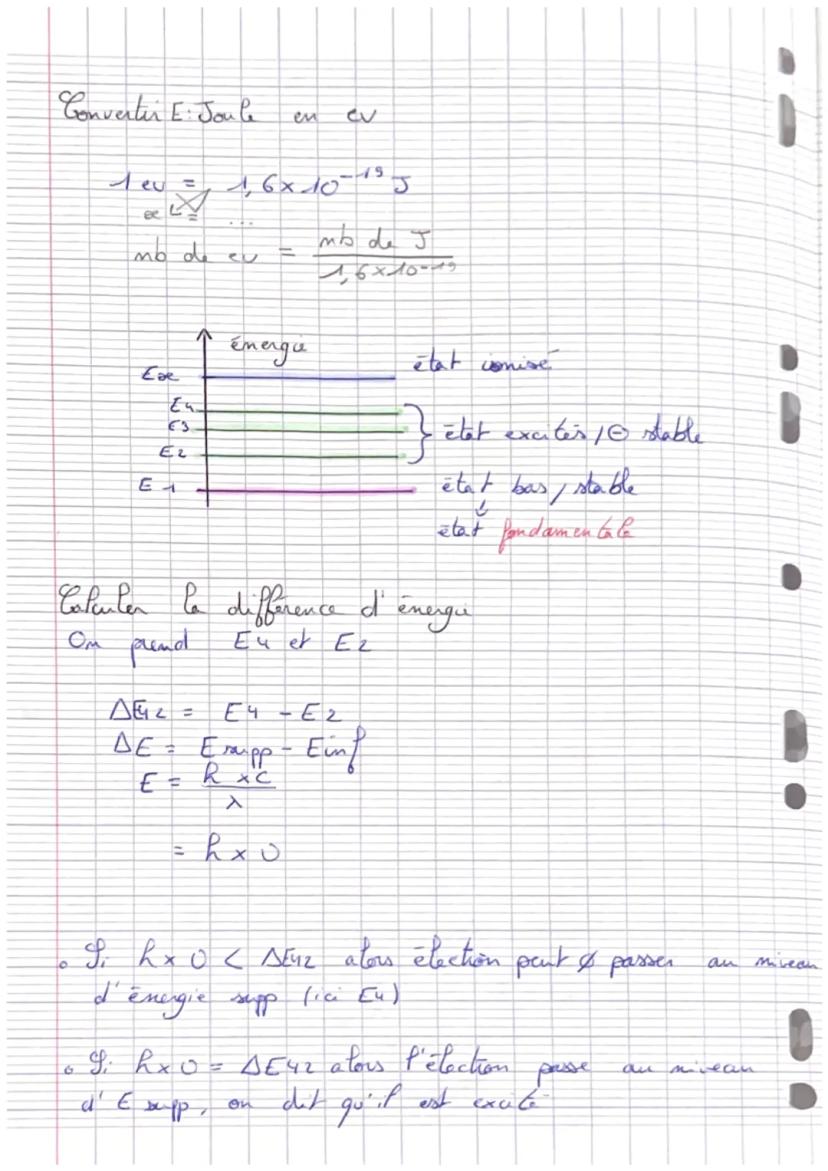 Convertir E: Joule en ev
1 ev = 1,6 × 10⁻¹⁹ J
x = ...
nb de ev = nb de J / 1,6×10⁻¹⁹
énergie
état ionisé
E∞
E4
E3
état excités / ⊖ stable
E2
E1
état bas / stable
état fondamentale
Calculer la différence d'énergie
On prend E4 et E2
ΔE42 = E4 - E2
ΔE = E supp - Einf
E = h × c / λ
= h × υ
• Si h × υ < ΔE42 alors élection peut ∅ passer au niveau
d'énergie supp (ici E4)
• Si h × υ = ΔE42 alors l'élection passe au niveau
d'E supp, on dit qu'il est excité